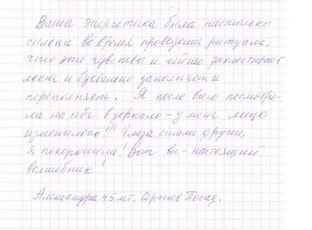 Ваша энергетика была настолько
сильна во время проведения ритуала,
что эти чувства и сейчас захлестывают
меня и буквально заполняют и
переполняет. Я после всего посмотре-
ла на себя в зеркало - у меня лицо
изменилось!!! Глаза стали другие,
я похорошела! Вот вы - настоящий
волшебник!
Александра 45 лет. Сергиев Посад.